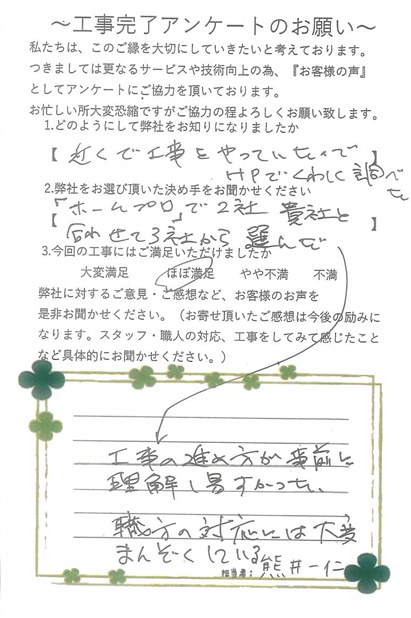 ～工事完了アンケートのお願い～
私たちは、このご縁を大切にしていきたいと考えております。
つきましては更なるサービスや技術向上の為、『お客様の声』
としてアンケートにご協力を頂いております。
お忙しい所大変恐縮ですがご協力の程よろしくお願い致します。
1.どのようにして弊社をお知りになりましたか
【 近くで工事をやっていたので
HPでくわしく調べた 】
2.弊社をお選び頂いた決め手をお聞かせください
【 「ホームプロ」で2社 貴社と
合わせて3社から 選んだ 】
3.今回の工事にはご満足いただけましたか
大変満足 ほぼ満足 やや不満 不満
弊社に対するご意見・ご感想など、お客様のお声を
是非お聞かせください。（お寄せ頂いたご感想は今後の励みに
なります。スタッフ・職人の対応、工事をしてみて感じたこと
など具体的にお聞かせください。）
工事の進め方が事前に
理解し易すかった、
職方の対応には大変
まんぞくしている
担当者: 熊井一仁